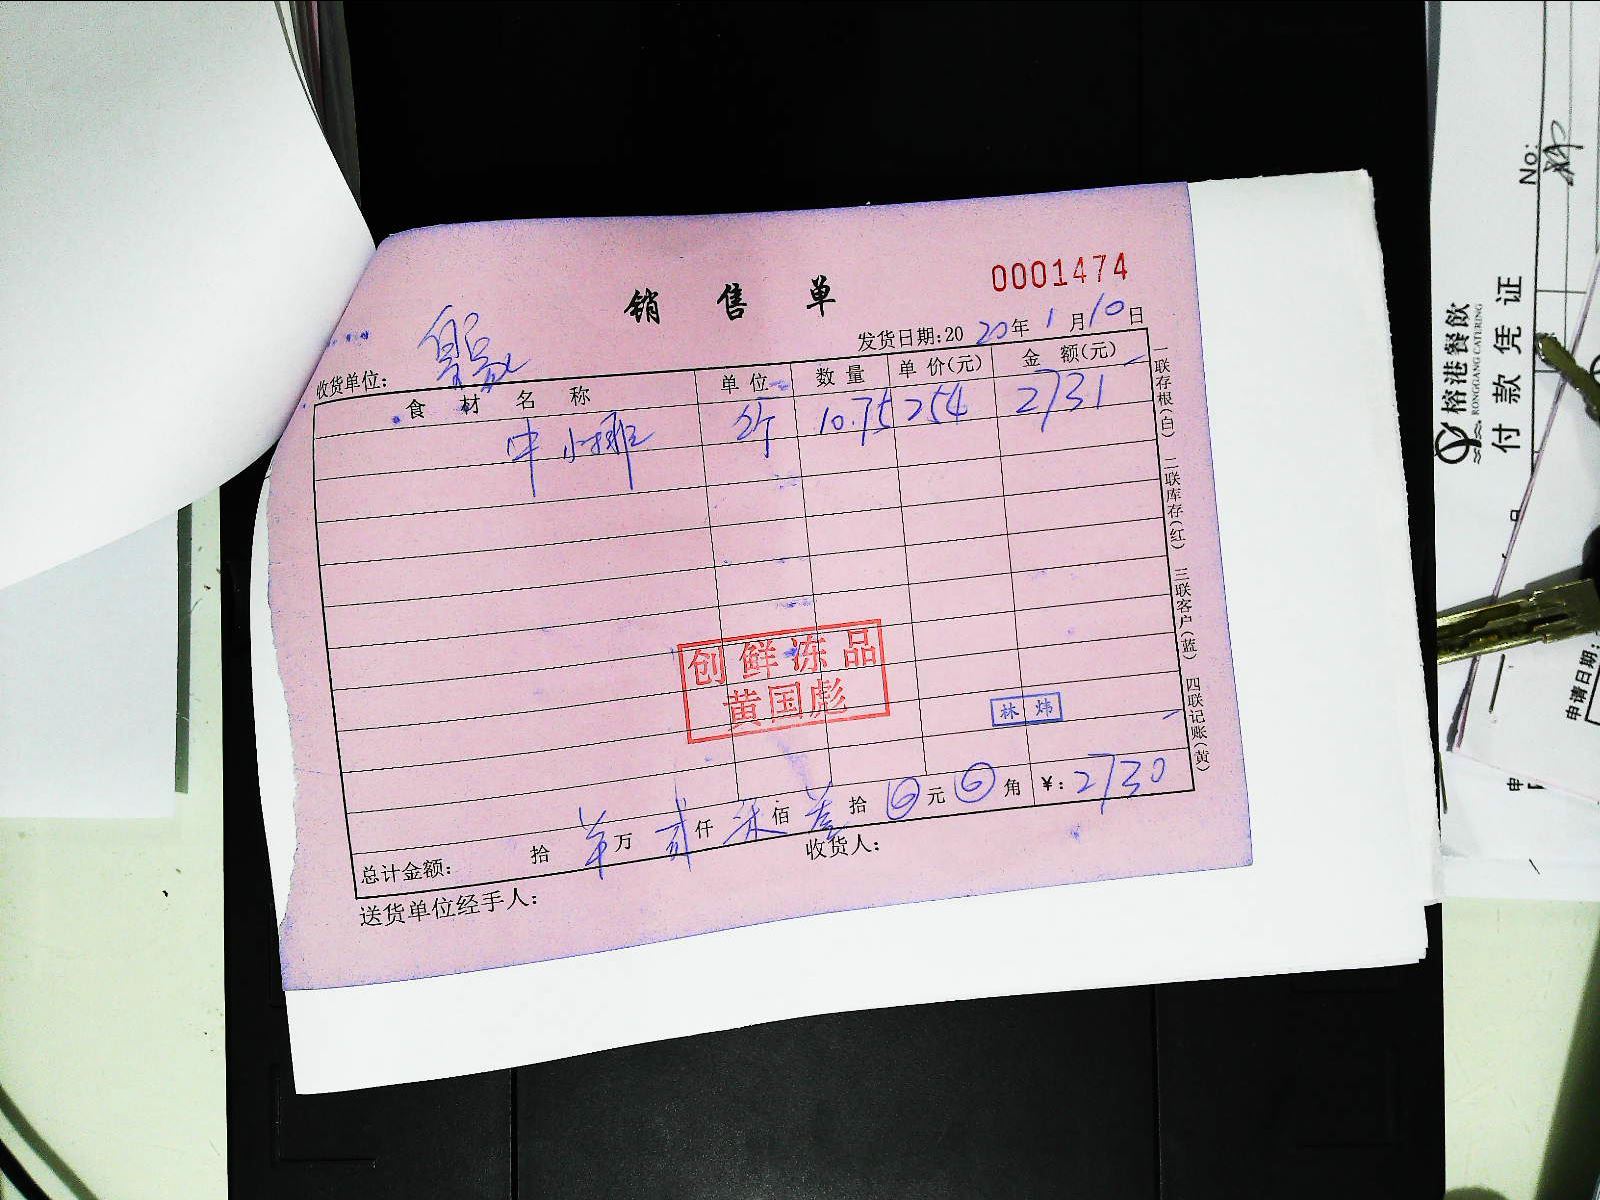 销售单
0001474
发货日期:2020年1月10日
收货单位:
食材名称 单位 数量 单价(元) 金额(元)
牛小排 斤 10.75 254 2731
创鲜冻品
黄国彪
林炜
总计金额: 拾 万 贰仟 柒佰 叁拾 0元 0角 ¥:2730
送货单位经手人: 收货人:
一联存根(白) 二联库存(红) 三联客户(蓝) 四联记账(黄)
榕港餐飲
RONGGANG CATERING
付款凭证
No:
申请日期: